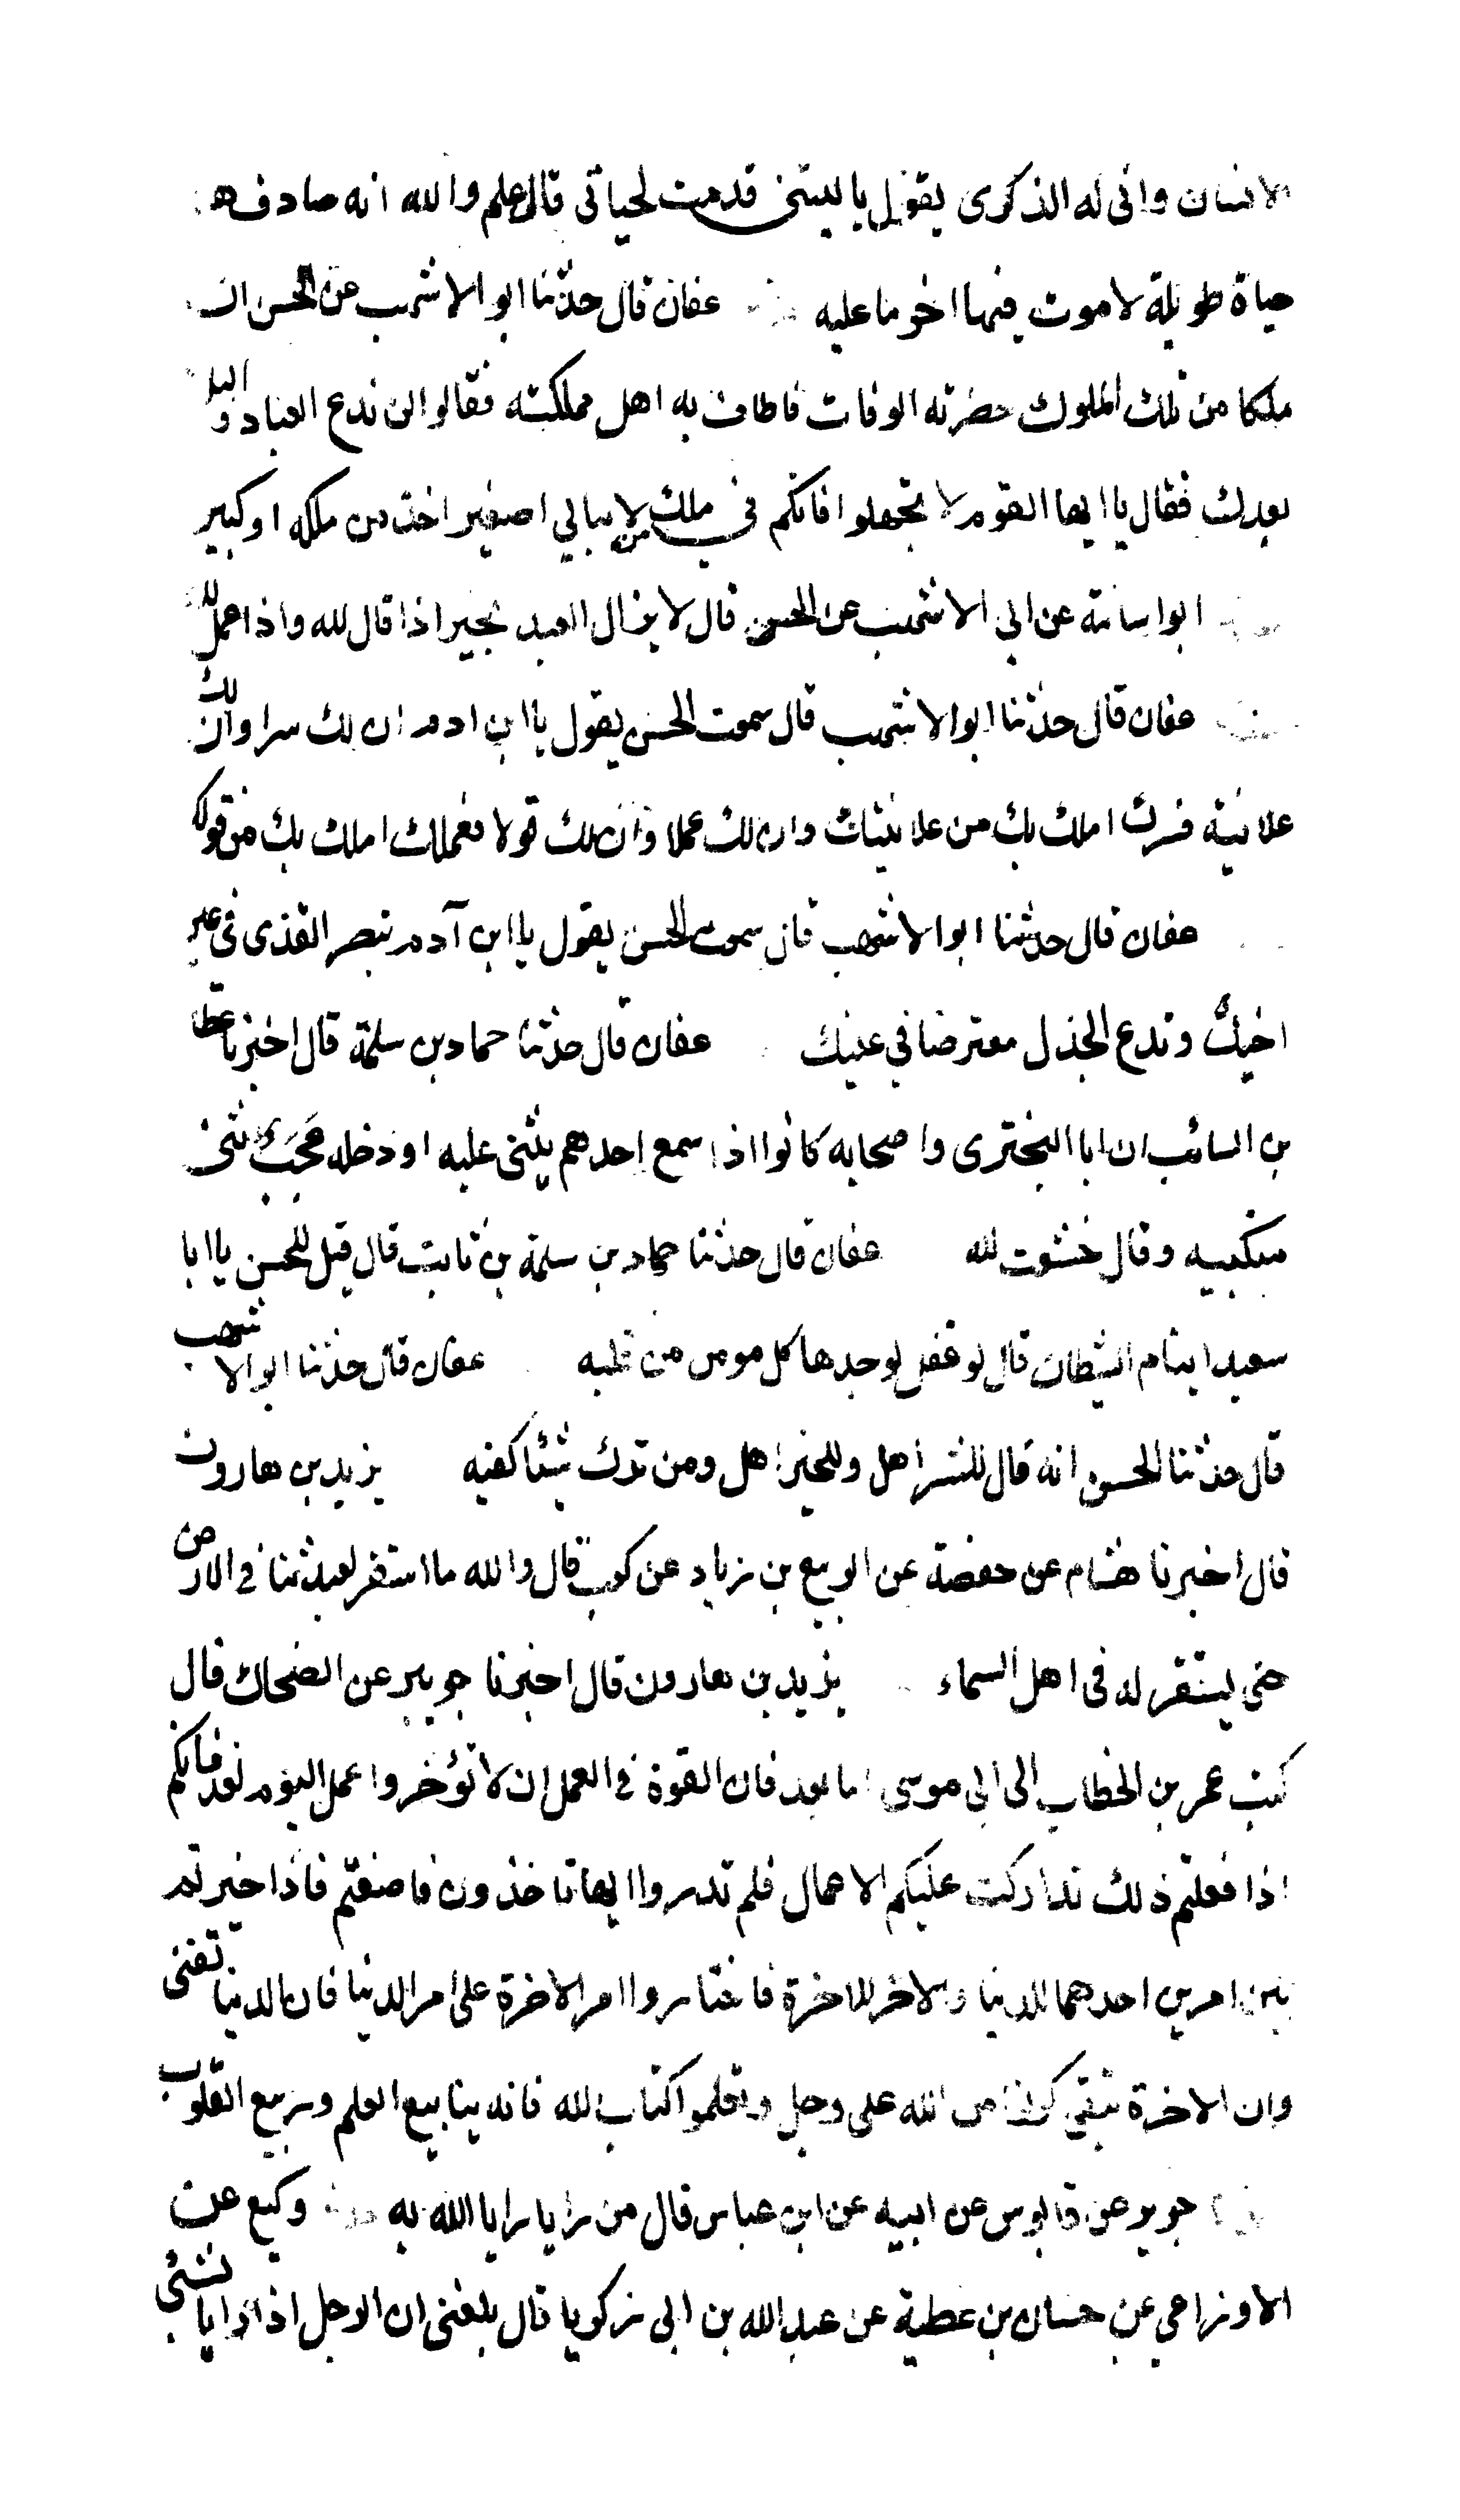 الانسان وانى له الذكرى يقول ياليتنى قدمت لحياتى قال علم والله انه صادف هـ
حياة طويلة لا موت فيها اخر ما عليه عفان قال حدثنا ابو الاشهب عن الحسن ان
ملكا من تلك الملوك حضرته الوفات فاطاف به اهل مملكته فقالوا لن ندع العباد والبلا
بعدك فقال يا ايها القوم لا تجهلوا فانكم في ملك من لا يبالي اصغير اخذ من ملكه او كبير
ابو اسامة عن ابي الاشهب عن الحسن قال لا يزال العبد بخير اذا قال لله واذا عمل لله
عفان قال حدثنا ابو الاشهب قال سمعت الحسن يقول يا ابن ادم ان لك سرا وان لك
علانية فسرك املك بك من علانيتك وان لك عملا وان لك قولا فعملك املك بك من قولك
عفان قال حدثنا ابو الاشهب قال سمعت الحسن يقول يا ابن آدم تبصر القذى في عين
اخيك وتدع الجذل معترضا في عينك عفان قال حدثنا حماد بن سلمة قال اخبرنا عطا
بن السائب ان ابا البخترى واصحابه كانوا اذا سمع احدهم يثنى عليه او دخله عجب ثنى
منكبيه وقال خشعت لله عفان قال حدثنا حماد بن سلمة بن ثابت قال قيل للحسن يا ابا
سعيد اينام الشيطان قال لو غفل لوجدها كل مومن من قلبه عفان قال حدثنا ابو الاشهب
قال حدثنا الحسن انه قال للشر اهل وللخير اهل ومن ترك شيئا كفيه يزيد بن هارون
قال اخبرنا هشام عن حفصة عن الربيع بن زياد عن كعب قال والله ما استقر لعبد ثنا في الارض
حتى يستقر له في اهل السماء يزيد بن هارون قال اخبرنا جويبر عن الضحاك قال
كتب عمر بن الخطاب الى ابى موسى اما بعد فان القوة في العمل ان لا تؤخروا عمل اليوم لغد فانكم
اذا فعلتم ذلك تداركت عليكم الاعمال فلم تدروا ايها تاخذون فاضعتم فاذا خيرتم
بين امرين احدهما للدنيا والاخر للاخرة فاختاروا امر الاخرة على امر الدنيا فان الدنيا تفنى
وان الاخرة تبقى من الله على وجل وتعلموا كتاب الله فانه ينابيع العلم وربيع القلوب
جرير عن قابوس عن ابيه عن ابن عباس قال من رايا رايا الله به وكيع عن
الاوزاعي عن حسان بن عطية عن عبد الله بن ابى زكريا قال بلغنى ان الرجل اذا رايا بشئى